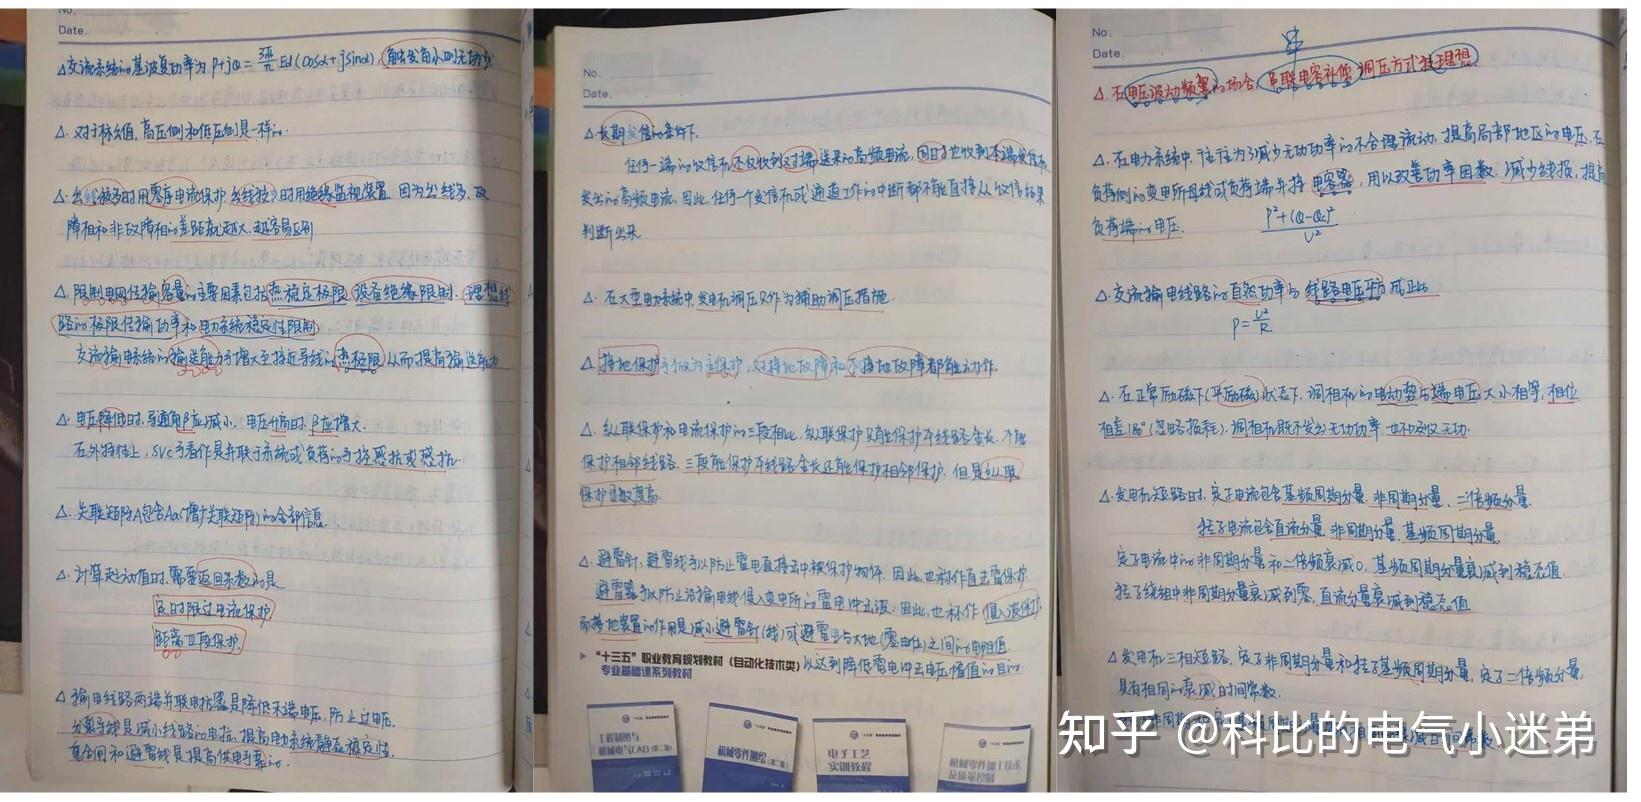 No.
Date.
△交流系统的基波复功率为 P+jQ = Ed(cosα+jsinα),触发角小则无功少
△. 对于标幺值,高压侧和低压侧是一样的.
△. 出线较多时用零序电流保护 出线较少时用绝缘监视装置 因为出线多,故
障相和非故障相的差距就越大,越容易区别
△. 限制电网传输容量的主要因素包括热稳定极限、设备绝缘限制、理想线
路的极限传输功率和电力系统稳定性限制
交流输电系统的输送能力可增大至接近导线的热极限从而提高输送能力
△. 电压降低时,导通角β应减小,电压升高时,β应增大.
在外特性上,SVC可看作是并联于系统或负荷的可控感抗或容抗.
△. 关联矩阵A包含Aa(增广关联矩阵)的全部信息.
△. 计算起动值时,需要返回系数的是
定时限过电流保护
距离Ⅲ段保护.
△ 输电线路两端并联电抗器是降低末端电压,防止过电压.
分裂导线是减小线路的电抗,提高电力系统静态稳定性.
重合闸和避雷线是提高供电可靠的.
No.
Date.
△.长期发信的条件下.
任何一端的收信机不仅收到对端送来的高频电流,同时也收到本端发信机
发出的高频电流,因此,任何一个发信机或通道工作的中断都不能直接从收信结果
判断出来.
△. 在大型电力系统中发电机调压只作为辅助调压措施.
△. 接地保护可做为主保护,对接地故障和不接地故障都能动作.
△. 纵联保护和电流保护的三段相比,纵联保护只能保护本线路全长,不能
保护相邻线路.三段能保护本线路全长还能保护相邻保护.但是纵联
保护灵敏度高.
△. 避雷针,避雷线可以防止雷电直接击中被保护物体,因此,也称作直击雷保护
避雷器可以防止沿输电线侵入变电所的雷电冲击波.因此,也称作侵入波保护
而接地装置的作用是减小避雷针(线)或避雷器与大地(零电位)之间的电阻值.
以达到降低雷电冲击电压幅值的目的.
"十三五"职业教育规划教材(自动化技术类)
专业基础课系列教材
工程制图与
机械电气CAD(第二版)
机械零件测绘(第二版)
电子工艺
实训教程
机械零件加工技术
及质量控制
No.
Date.
△. 在电压波动频繁的场合,串联电容补偿调压方式较理想.
△. 在电力系统中,往往为了减少无功功率的不合理流动,提高局部地区的电压,在
负荷侧的变电所母线或负荷端并接电容器,用以改善功率因数,减少线损,提高
负荷端的电压. P²+(Q-Qc)²
U²
△. 交流输电线路的自然功率与线路电压平方成正比.
P=U²/R
△. 在正常励磁下(平励磁)状态下,调相机的电动势与端电压大小相等,相位
相差180°(忽略损耗).调相机既不发出无功功率,也不吸收无功.
△. 发电机短路时,定子电流包含基频周期分量,非周期分量,二倍频分量.
转子电流包含直流分量,非周期分量,基频周期分量
定子电流中的非周期分量和二倍频衰减0,基频周期分量衰减到稳态值.
转子绕组中非周期分量衰减到零,直流分量衰减到稳态值.
△ 发电机三相短路,定子非周期分量和转子基频周期分量,定子二倍频分量,
具有相同的衰减时间常数.
知乎 @科比的电气小迷弟